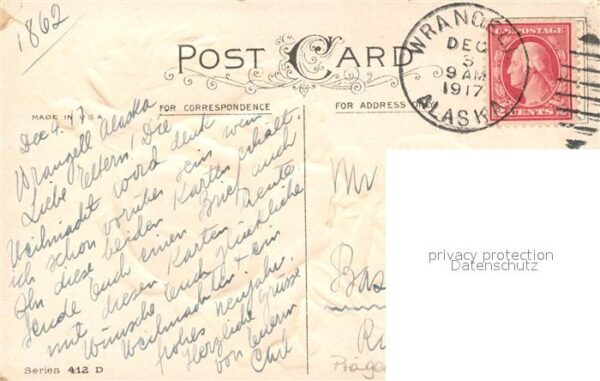 1862
POST CARD
WRANGELL
DEC
5
9 AM
1917
ALASKA
U.S. POSTAGE
CENTS
MADE IN U.S.A.
FOR CORRESPONDENCE
FOR ADDRESS ONLY
Dec 4. 17
Wrangell Alaska
Liebe Eltern! Die
Weihnacht word denk
ich schon vorüber sein wenn
Ihr diese beiden Karten erhält.
Sende Euch einen Brief auch
mit diesen Karten heute
Wünsche Euch glückliche
Weihnachten & ein
frohes neujahr.
Herzliche grüsse
von Eurem
Carl
Mr
Bas
privacy protection
Datenschutz
Series 412 D